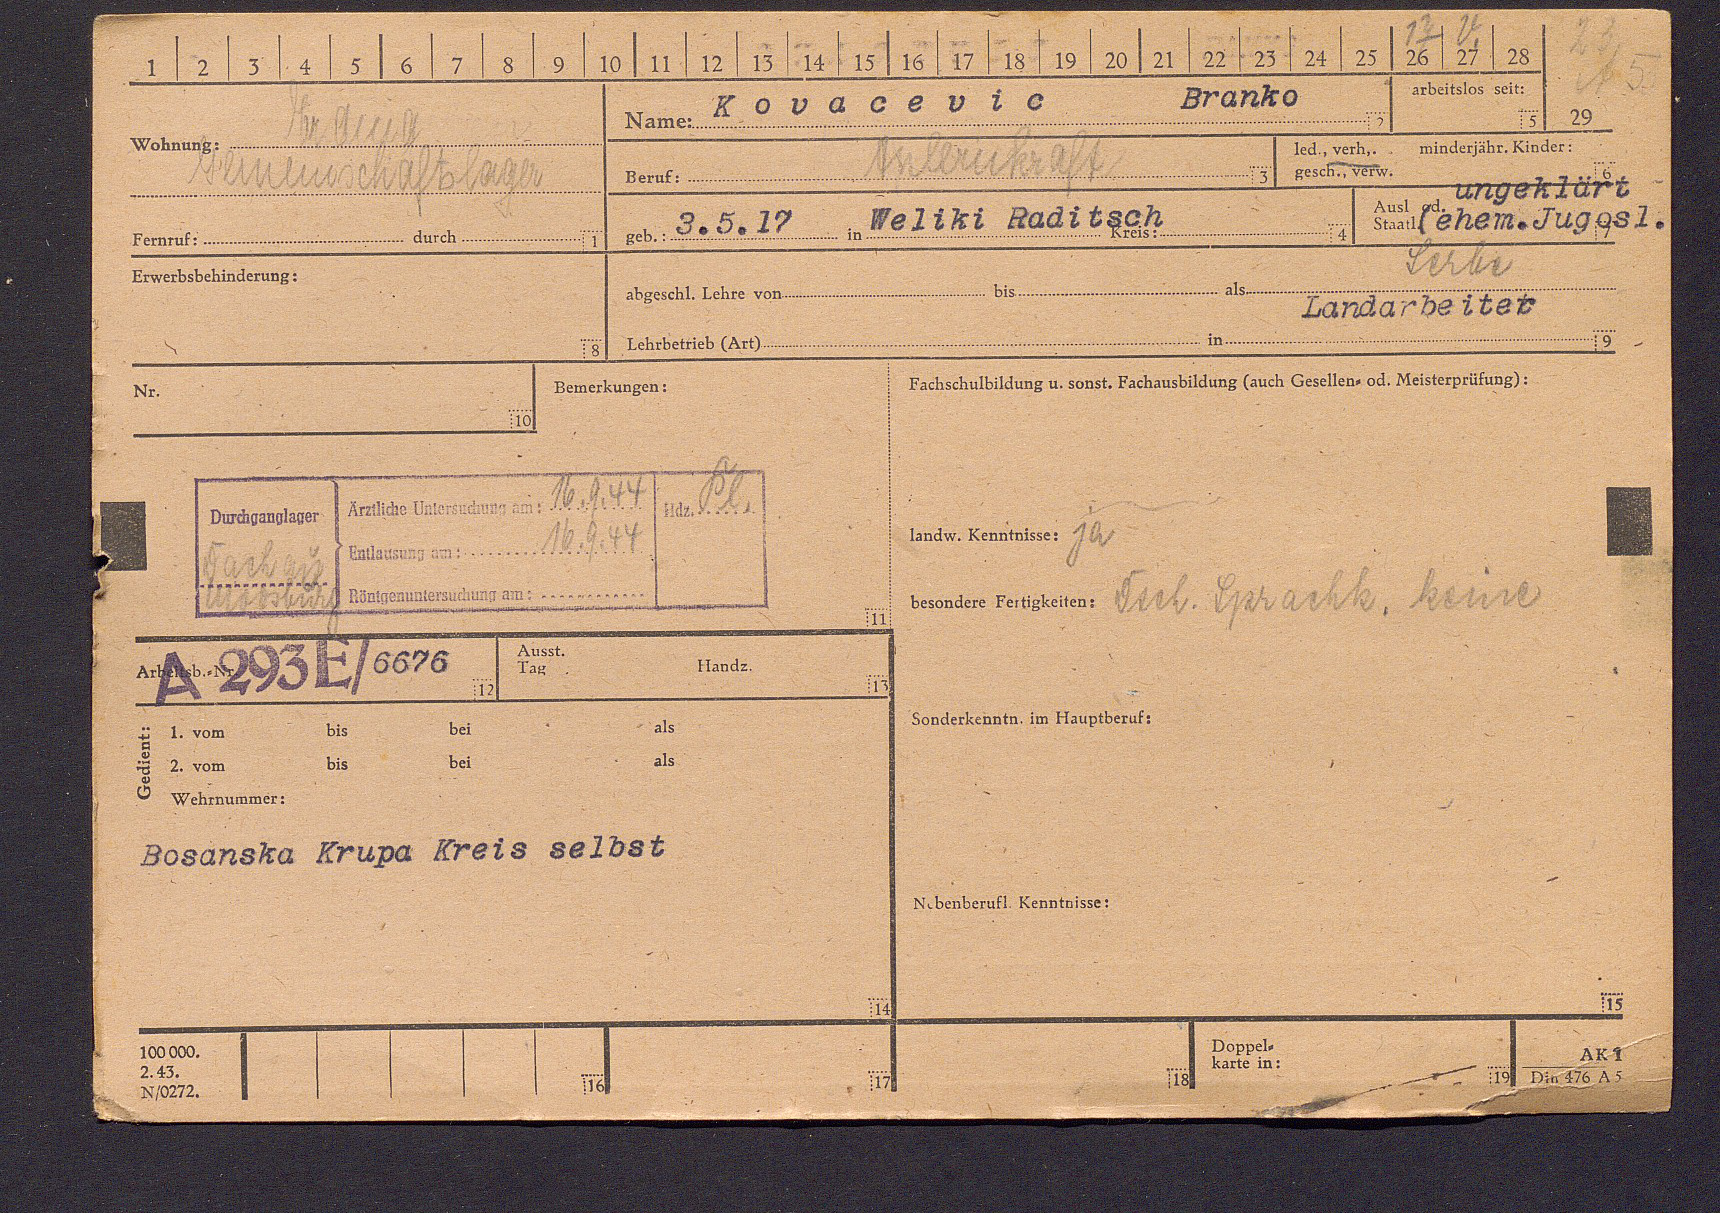 1 2 3 4 5 6 7 8 9 10 11 12 13 14 15 16 17 18 19 20 21 22 23 24 25 26 27 28
Wohnung:
Gemeinschaftslager
Fernruf: durch 1
Name: Kovacevic Branko 2
arbeitslos seit: 5
29
Beruf: Anlernkraft 3
led., verh., minderjähr. Kinder:
gesch., verw. 6
geb.: 3.5.17 in Weliki Raditsch Kreis: 4
Ausl od. ungeklärt
Staatl. (ehem.Jugosl. 7
Serbe
Erwerbsbehinderung:
8
abgeschl. Lehre von bis als
Landarbeiter
Lehrbetrieb (Art) in 9
Nr.
10
Bemerkungen:
Fachschulbildung u. sonst. Fachausbildung (auch Gesellen- od. Meisterprüfung):
Durchganglager
Moosburg
Ärztliche Untersuchung am: 16.9.44
Entlausung am: 16.9.44
Röntgenuntersuchung am:
Hdz.
11
landw. Kenntnisse: ja
besondere Fertigkeiten: Dtsch. Sprachk. keine
Arbeitsb.-Nr. A 293E/6676 12
Ausst.
Tag Handz. 13
Gedient:
1. vom bis bei als
2. vom bis bei als
Wehrnummer:
Bosanska Krupa Kreis selbst
14
Sonderkenntn. im Hauptberuf:
Nebenberufl. Kenntnisse:
15
100 000.
2.43.
N/0272.
16
17
18
Doppel-
karte in: 19
AK 1
Din 476 A 5